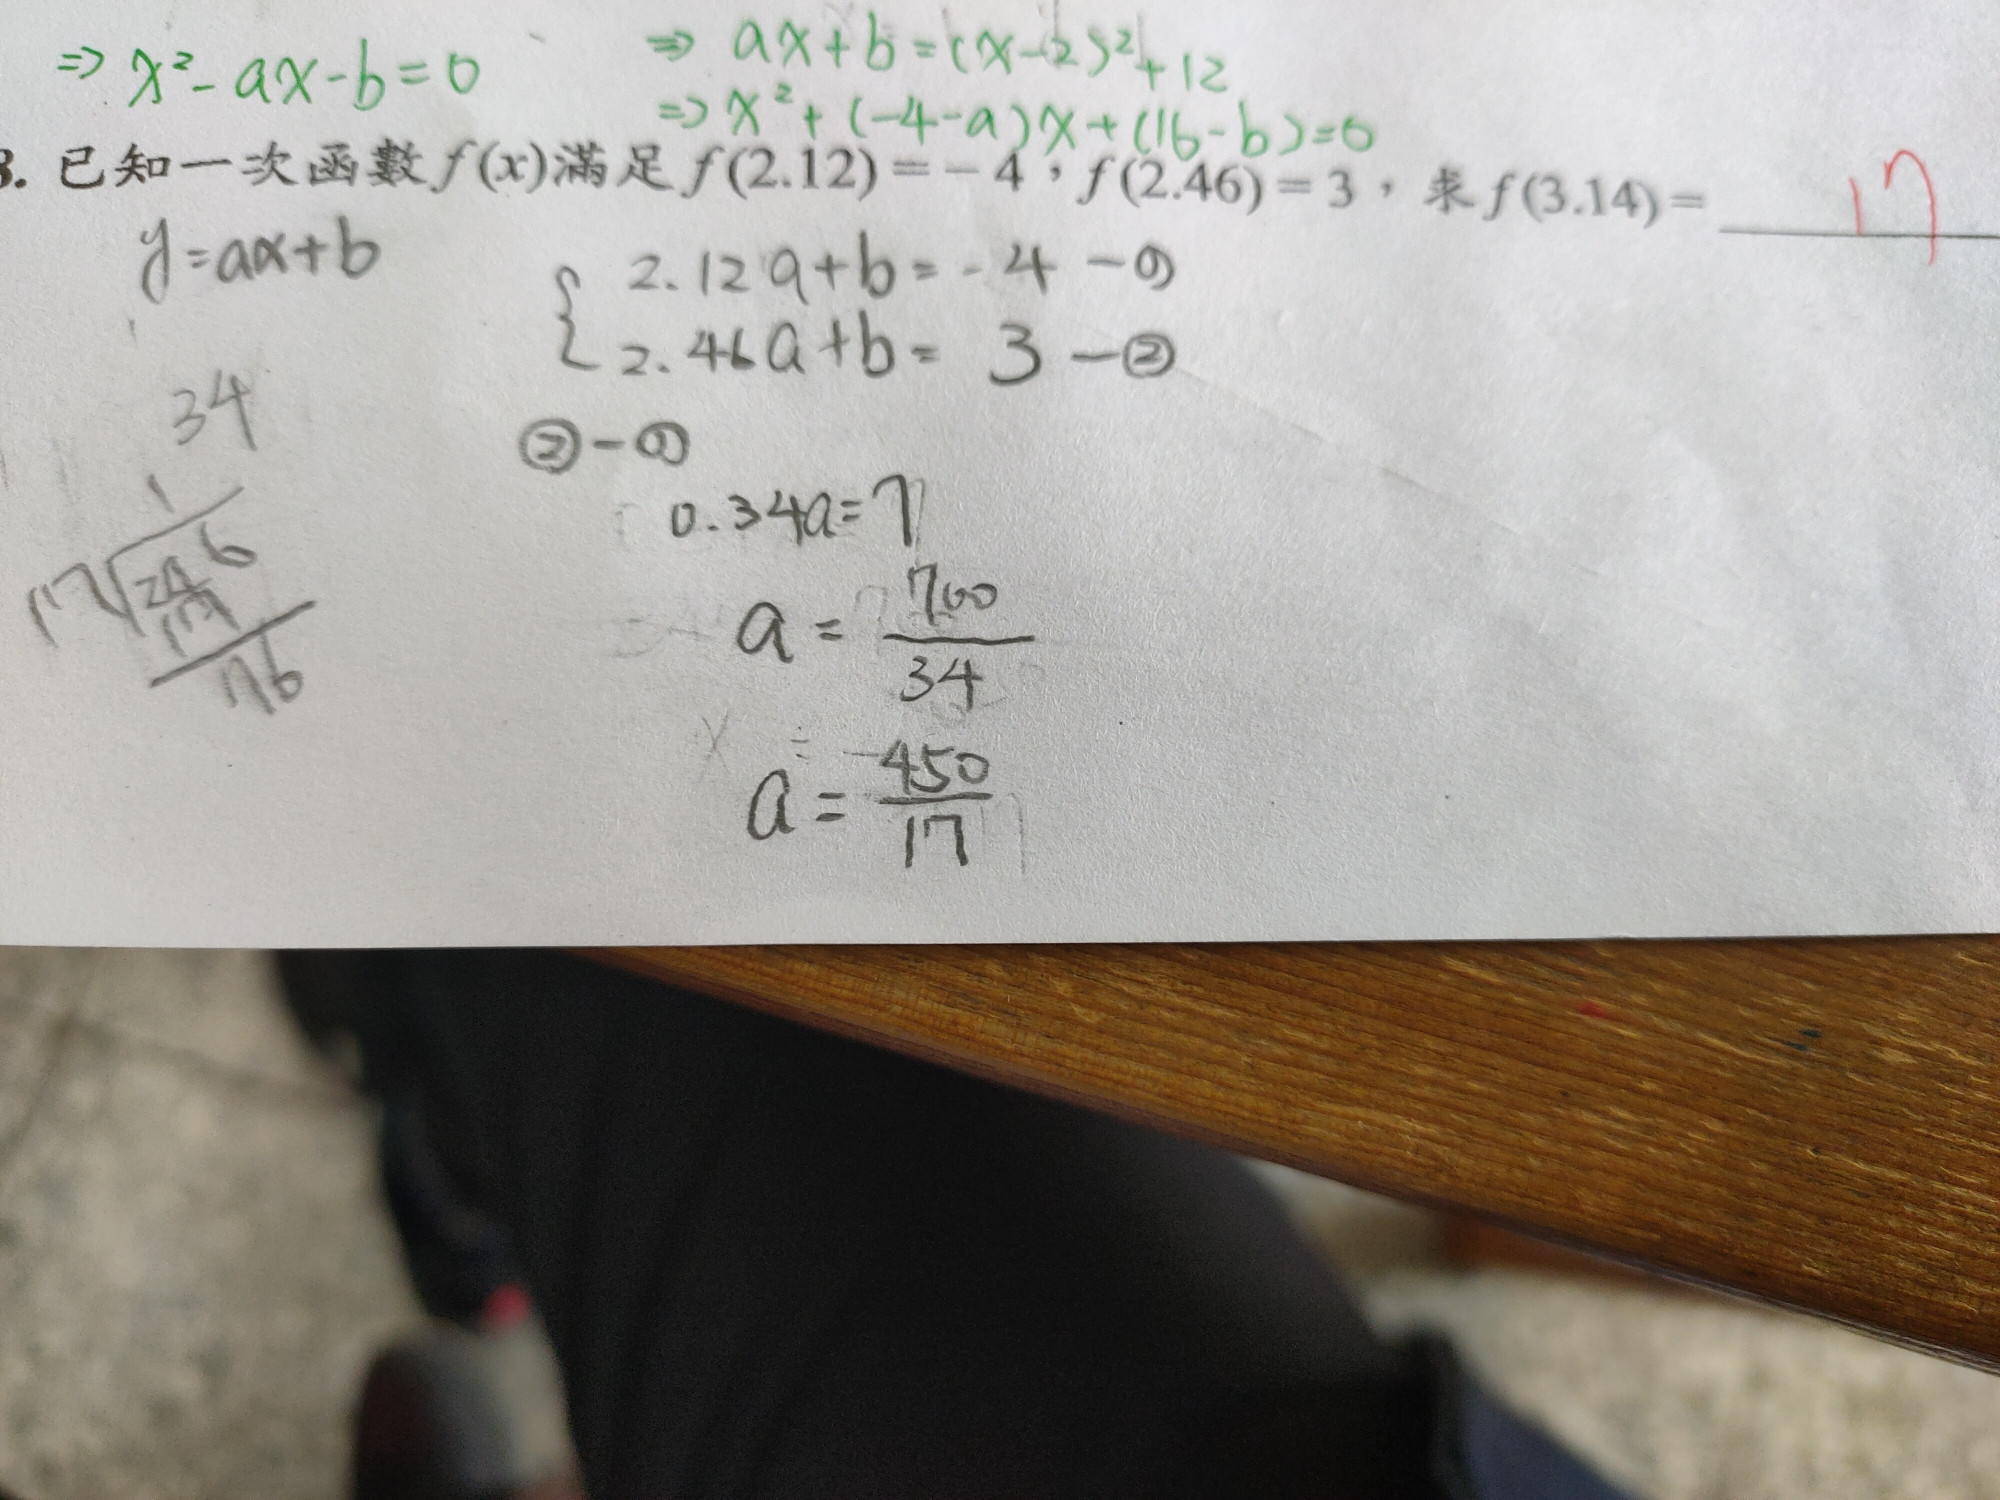 ⇒ x² - ax - b = 0
⇒ ax + b = (x-2)² + 12
⇒ x² + (-4-a)x + (16-b) = 0
3. 已知一次函數 f(x) 滿足 f(2.12) = -4，f(2.46) = 3，求 f(3.14) = 17
y = ax + b
2.12a + b = -4 —①
2.46a + b = 3 —②
34
②-①
0.34a = 7
1
17√246
17
76
a = 700/34
a = 450/17